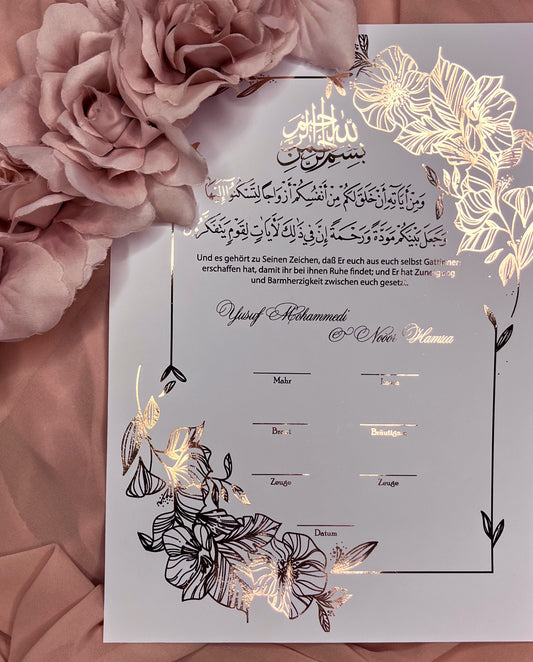 بسم الله الرحمن الرحيم
وَمِنْ أٰيَاتِهِ أَنْ خَلَقَ لَكُمْ مِنْ أَنْفُسِكُمْ أَزْوَاجًا لِتَسْكُنُوا إِلَيْهَا
وَجَعَلَ بَيْنَكُمْ مَوَدَّةً وَرَحْمَةً إِنَّ فِي ذٰلِكَ لَأٰيَاتٍ لِقَوْمٍ يَتَفَكَّرُونَ
Und es gehört zu Seinen Zeichen, daß Er euch aus euch selbst Gattinnen
erschaffen hat, damit ihr bei ihnen Ruhe findet; und Er hat Zuneigung
und Barmherzigkeit zwischen euch gesetzt.
Yusuf Mohammedi
& Nooor Hamza
Mahr
Braut Bräutigam
Zeuge Zeuge
Datum